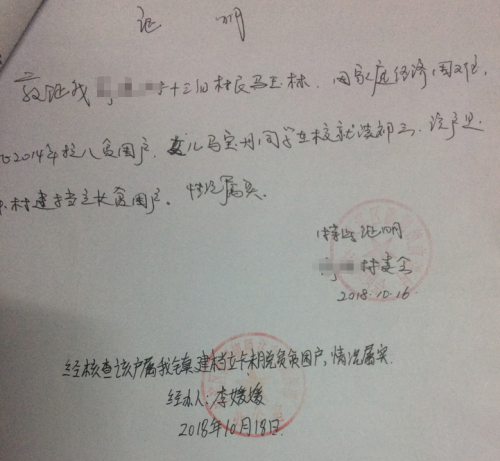 证 明
兹证我 村十三组村民马玉林. 因家庭经济困难,
2014年投入贫困户. 女儿马宝丹同学在校就读 . 该户是
村建档立卡贫困户. 情况属实.
特此证明
村委会
2018.10.16.
经核查该户属我镇建档立卡未脱贫贫困户,情况属实.
经办人:李媛媛
2018年10月18日.